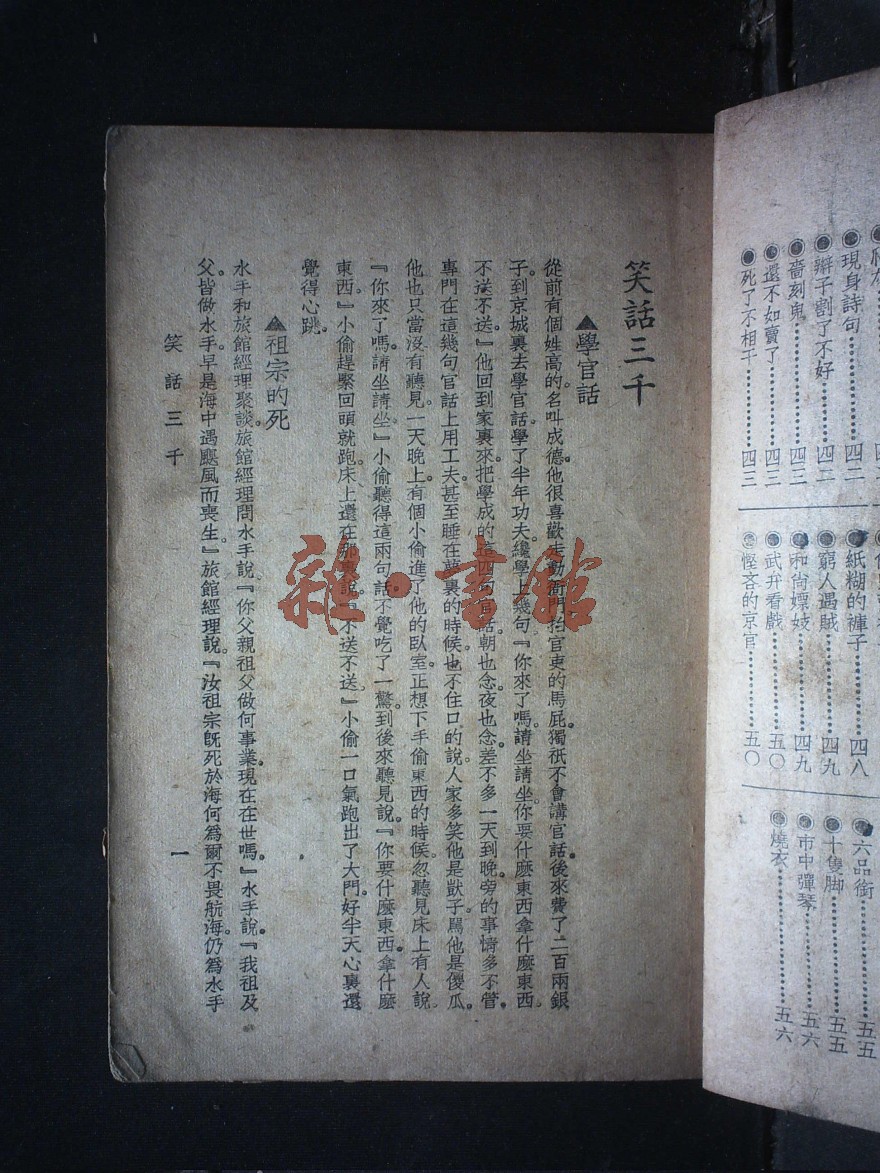 ●現身詩句………四二
●辮子割了不好………四二
●嗇刻鬼………四三
●還不如賣了………四三
●死了不相干………四三
●紙糊的褲子………四八
●窮人遇賊………四九
●和尚嫖妓………四九
●武弁看戲………五〇
●慳吝的京官………五〇
●六品銜………五五
●十隻脚………五五
●市中彈琴………五六
●燒衣………五六
笑話三千
▲學官話
從前有個姓高的。名叫成德。他很喜歡走動衙門。拍官吏的馬屁。獨祇不會講官話。後來費了二百兩銀
子。到京城裏去學官話。學了半年功夫。纔學上幾句『你來了嗎。請坐請坐。你要什麽東西拿什麽東西。
不送不送。』他回到家裏來。把學成的這四句官話。朝也念。夜也念。差不多一天到晚。旁的事情多不管。
專門在這幾句官話上用工夫。甚至睡在夢裏的時候。也不住口的說。人家多笑他是獃子。罵他是傻瓜。
他也只當沒有聽見。一天晚上。有個小偷進了他的臥室。正想下手偷東西的時候。忽聽見床上有人說。
『你來了嗎。請坐請坐。』小偷聽得這兩句話。不覺吃了一驚。到後來聽見說。『你要什麽東西拿什麽
東西。』小偷趕緊回頭就跑。床上還在那裏說。『不送不送。』小偷一口氣跑出了大門。好半天心裏還
覺得心跳。
▲祖宗的死
水手和旅館經理聚談。旅館經理問水手說。『你父親祖父做何事業。現在在世嗎。』水手說。『我祖及
父。皆做水手。早是海中遇颶風而喪生。』旅館經理說。『汝祖宗旣死於海。何爲爾不畏航海。仍爲水手
笑話三千
一
雜·書館